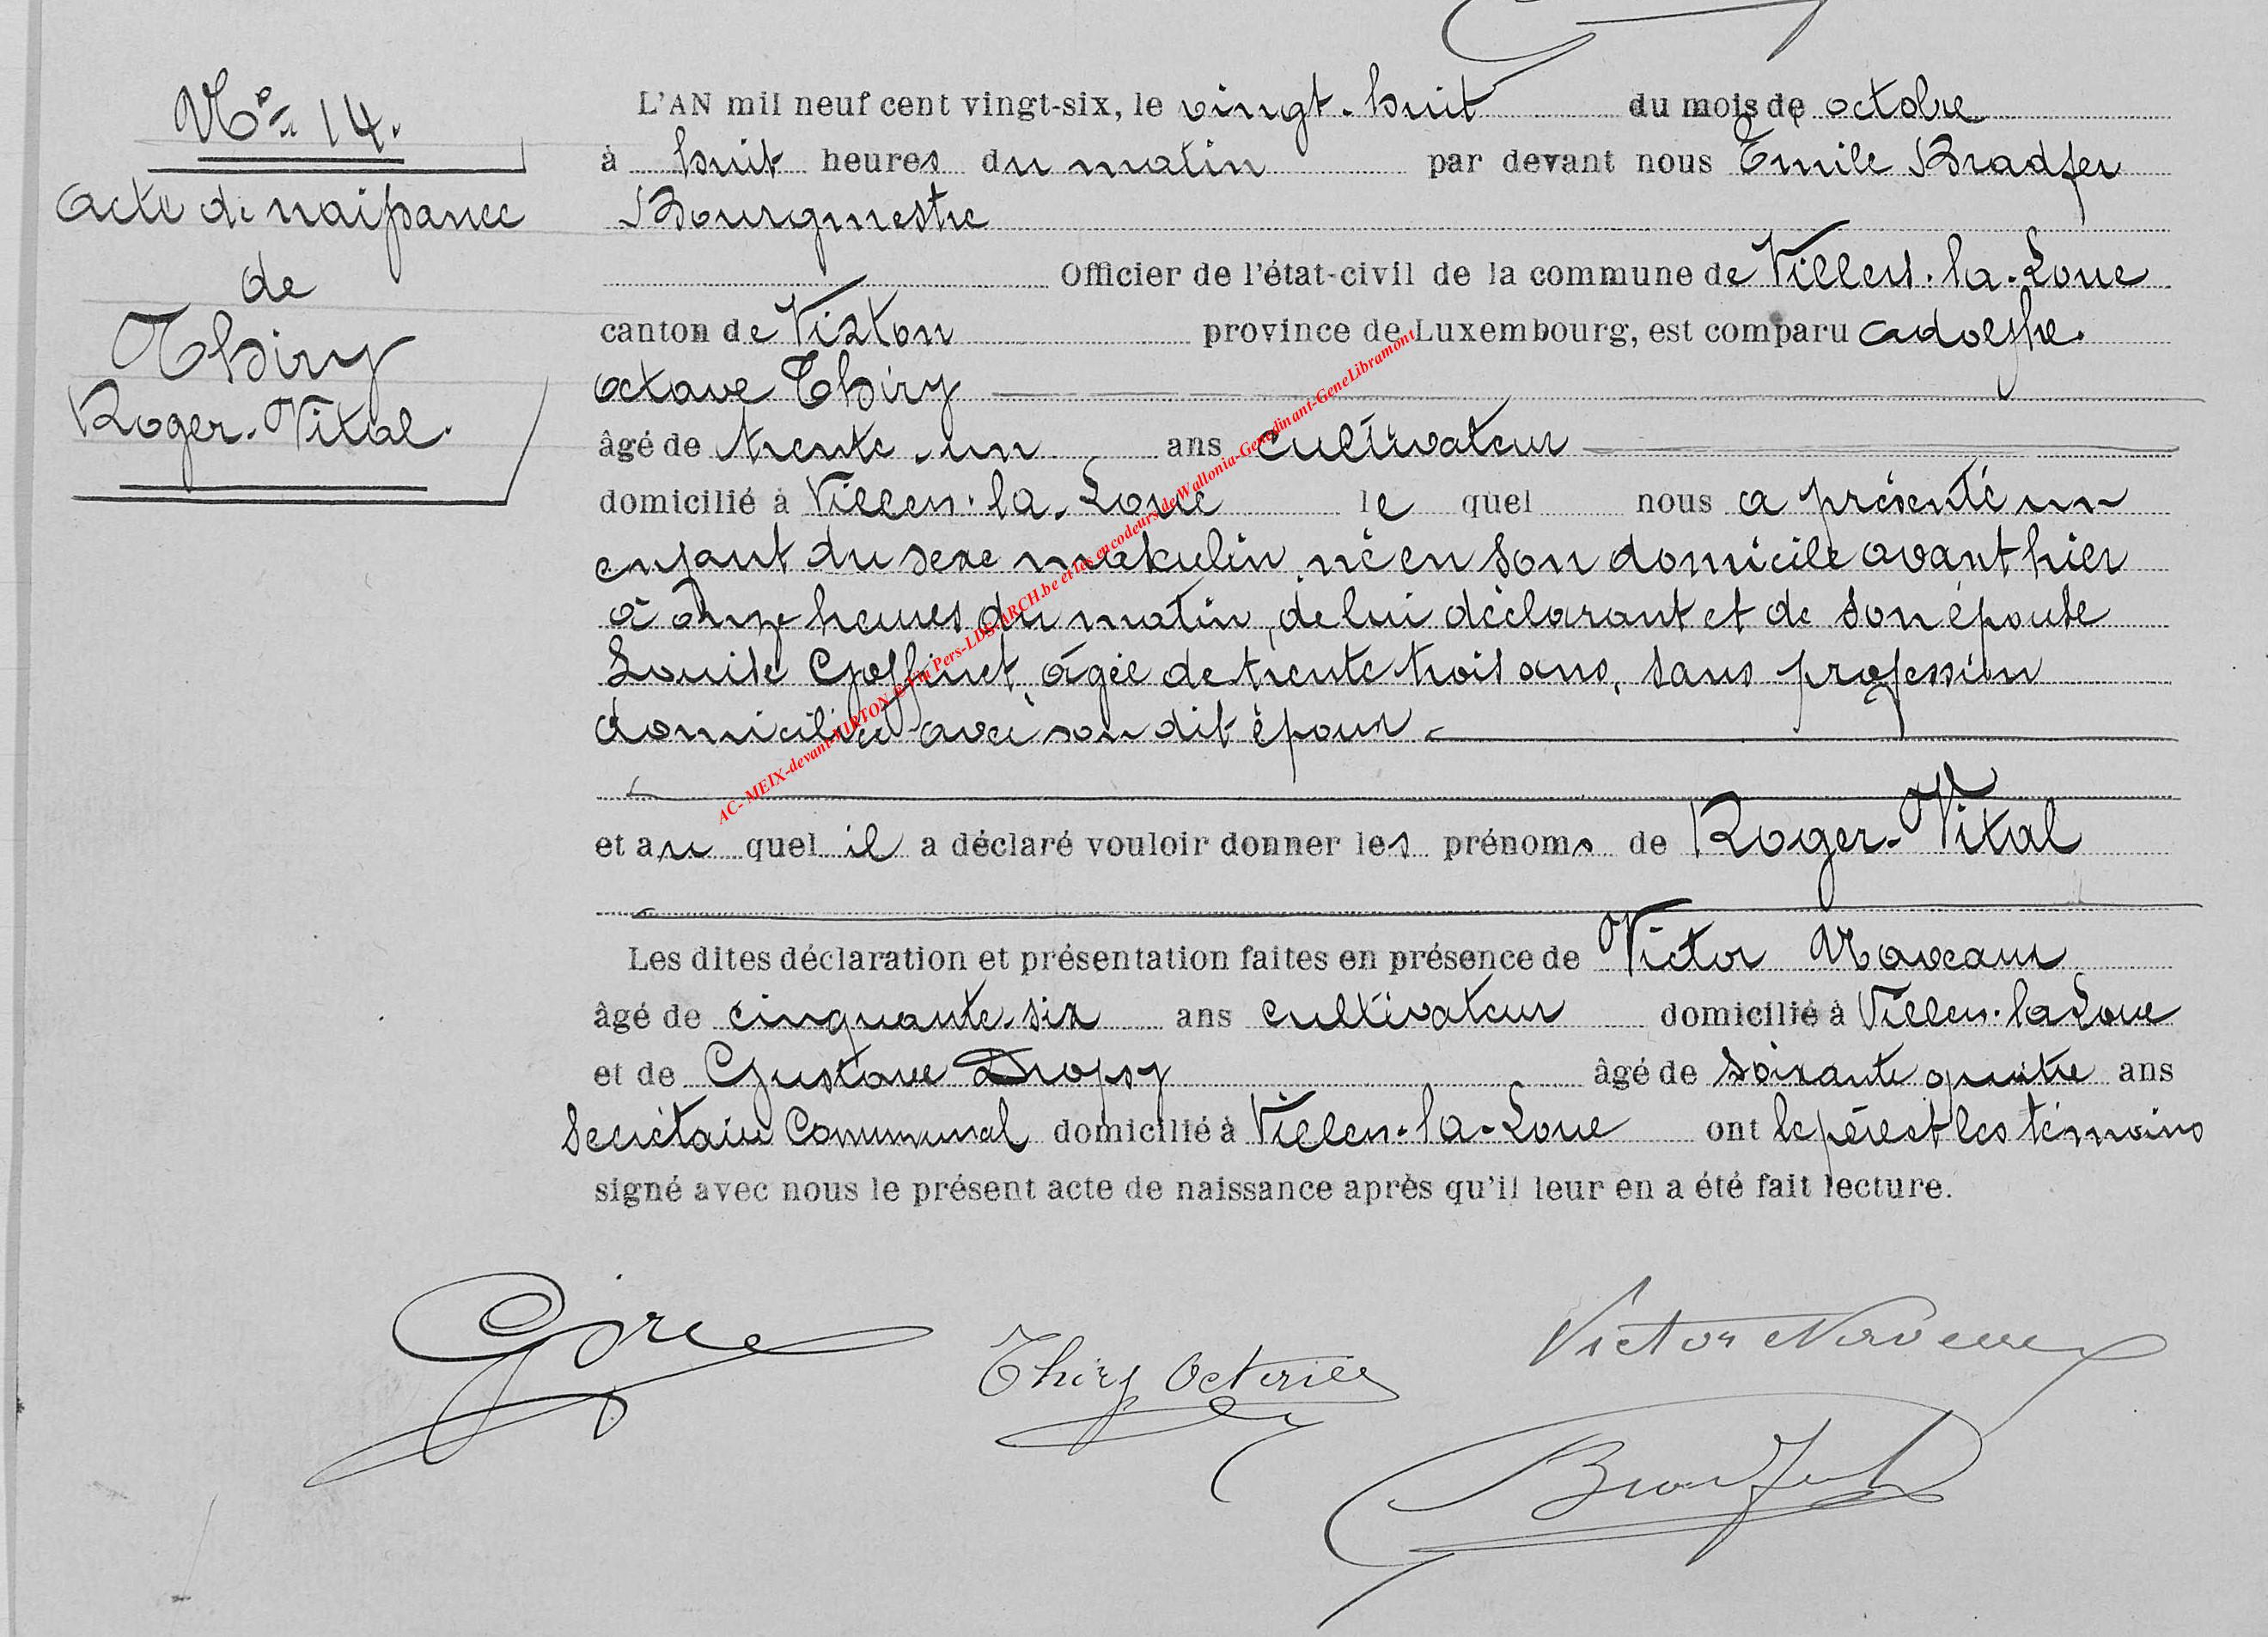 N° 14.
Acte de naissance
de
Thiry
Roger-Vital.
L'AN mil neuf cent vingt-six, le vingt-huit du mois de octobre
à huit heures du matin par devant nous Emile Bradfer
Bourgmestre
Officier de l'état-civil de la commune de Villers-la-Loue
canton de Virton province de Luxembourg, est comparu Adolphe-
Octave Thiry
âgé de trente-un ans cultivateur
domicilié à Villers-la-Loue le quel nous a présenté un
enfant du sexe masculin, né en son domicile avant hier
à onze heures du matin, de lui déclarant et de son épouse
Louise Goffinet, âgée de trente trois ans, sans profession
domiciliée avec son dit époux
et au quel il a déclaré vouloir donner les prénoms de Roger-Vital
Les dites déclaration et présentation faites en présence de Victor Naveaux
âgé de cinquante-six ans cultivateur domicilié à Villers-la Loue
et de Gustave Dropsy âgé de soixante quatre ans
Secrétaire Communal domicilié à Villers-la-Loue ont le père et les témoins
signé avec nous le présent acte de naissance après qu'il leur en a été fait lecture.
Thiry
Victor
Bradfer
AC- MEIX-devant-VIRTON Pers-LDS-ARCH.be et les encodeurs de Wallonia-Genedinant-GeneLibramont